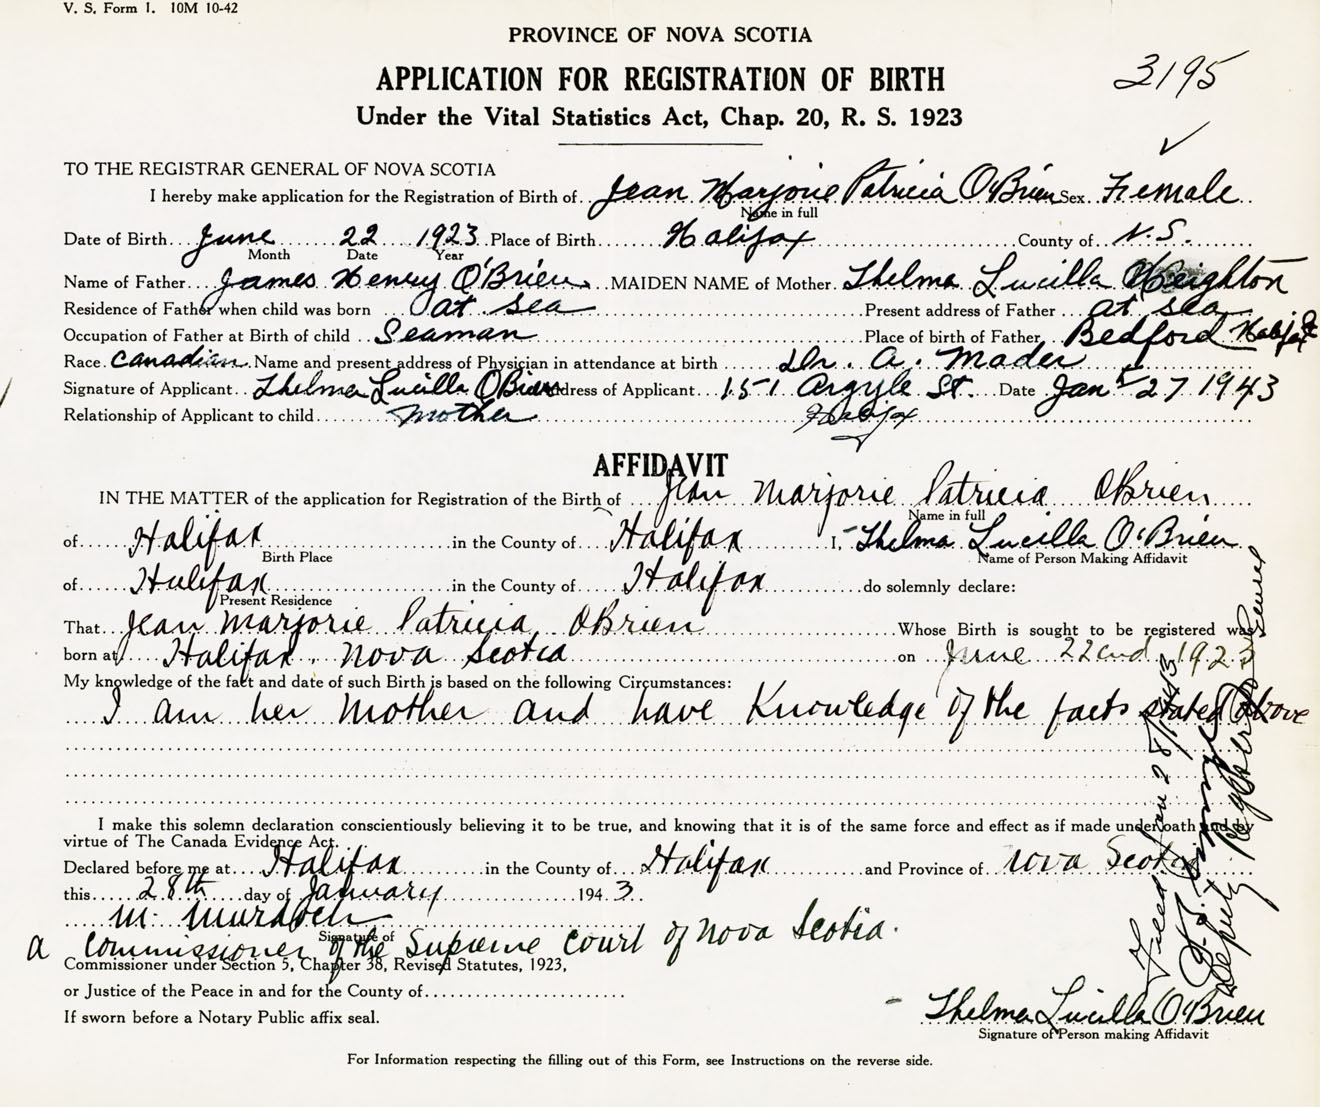 V. S. Form 1. 10M 10-42
PROVINCE OF NOVA SCOTIA
3195
APPLICATION FOR REGISTRATION OF BIRTH
Under the Vital Statistics Act, Chap. 20, R. S. 1923
TO THE REGISTRAR GENERAL OF NOVA SCOTIA
I hereby make application for the Registration of Birth of Jean Marjorie Patricia O'Brien Sex Female
Name in full
Date of Birth June 22 1923 Place of Birth Halifax County of N.S.
Month Date Year
Name of Father James Henry O'Brien MAIDEN NAME of Mother Thelma Lucilla Heighton
Residence of Father when child was born at sea Present address of Father at sea
Occupation of Father at Birth of child Seaman Place of birth of Father Bedford Halifax
Race Canadian Name and present address of Physician in attendance at birth Dr. A. Mader
Signature of Applicant Thelma Lucilla O'Brien Address of Applicant 151 Argyle St. Date Jan 27 1943
Relationship of Applicant to child mother Halifax
AFFIDAVIT
IN THE MATTER of the application for Registration of the Birth of Jean Marjorie Patricia O'Brien
Name in full
of Halifax in the County of Halifax I, Thelma Lucilla O'Brien
Birth Place Name of Person Making Affidavit
of Halifax in the County of Halifax do solemnly declare:
Present Residence
That Jean Marjorie Patricia O'Brien Whose Birth is sought to be registered was
born at Halifax, Nova Scotia on June 22nd 1923
My knowledge of the fact and date of such Birth is based on the following Circumstances:
I am her Mother and have Knowledge of the facts stated above
I make this solemn declaration conscientiously believing it to be true, and knowing that it is of the same force and effect as if made under oath and by
virtue of The Canada Evidence Act.
Declared before me at Halifax in the County of Halifax and Province of Nova Scotia
this 28th day of January 1943.
M. Murdoch
Signature of
a Commissioner of the Supreme Court of Nova Scotia.
Commissioner under Section 5, Chapter 38, Revised Statutes, 1923,
or Justice of the Peace in and for the County of
If sworn before a Notary Public affix seal.
Thelma Lucilla O'Brien
Signature of Person making Affidavit
For Information respecting the filling out of this Form, see Instructions on the reverse side.
Filed Jan 28/1943
Deputy Registrar General